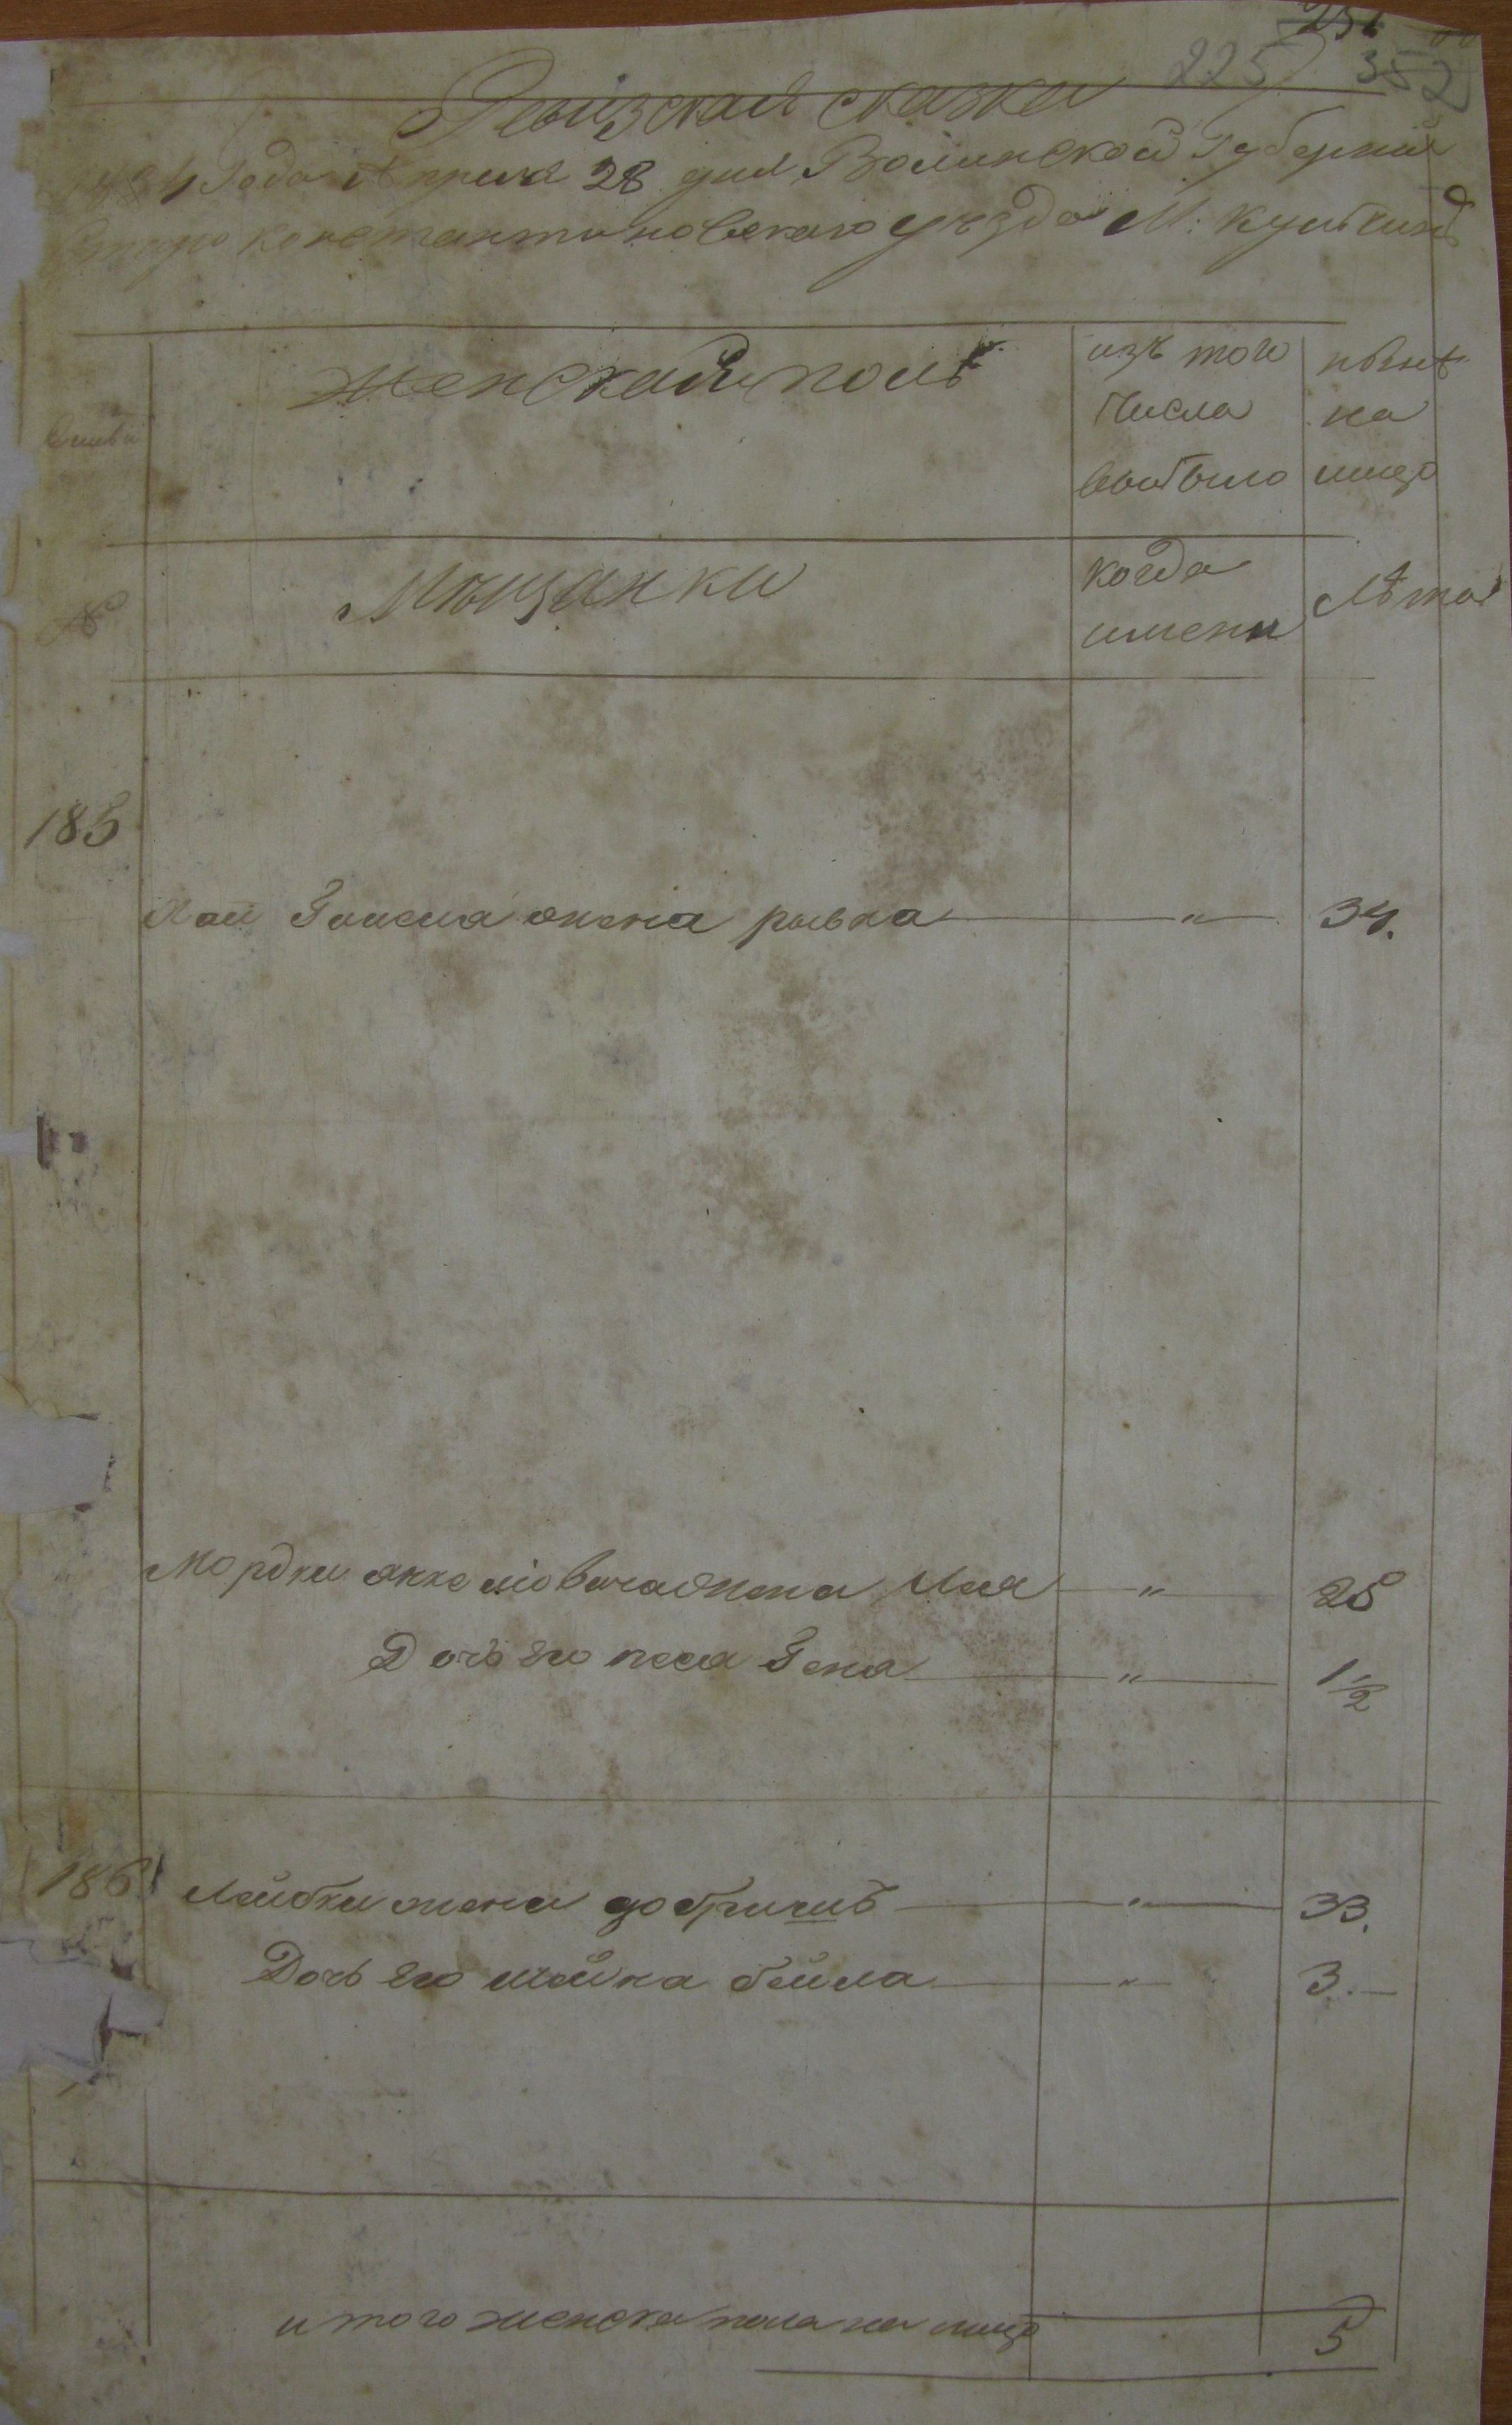 251
225 352
Ревизская сказка
1834 Года Апреля 28 дня Волинской Губернии
Старо константиновскаго уезда М: Кульчинъ
женской полъ
изъ того числа выбыло
ныне на лицо
Семьи
№
Мещанки
когда имени
Лѣта
185
жена рывка " 34.
Мордки жена Лея " 25
Дочь его песя Геня " 1 1/2
186
Лейбки жена добришъ " 33.
Дочь его шейна бейла " 3.
итого женска пола на лицо 5